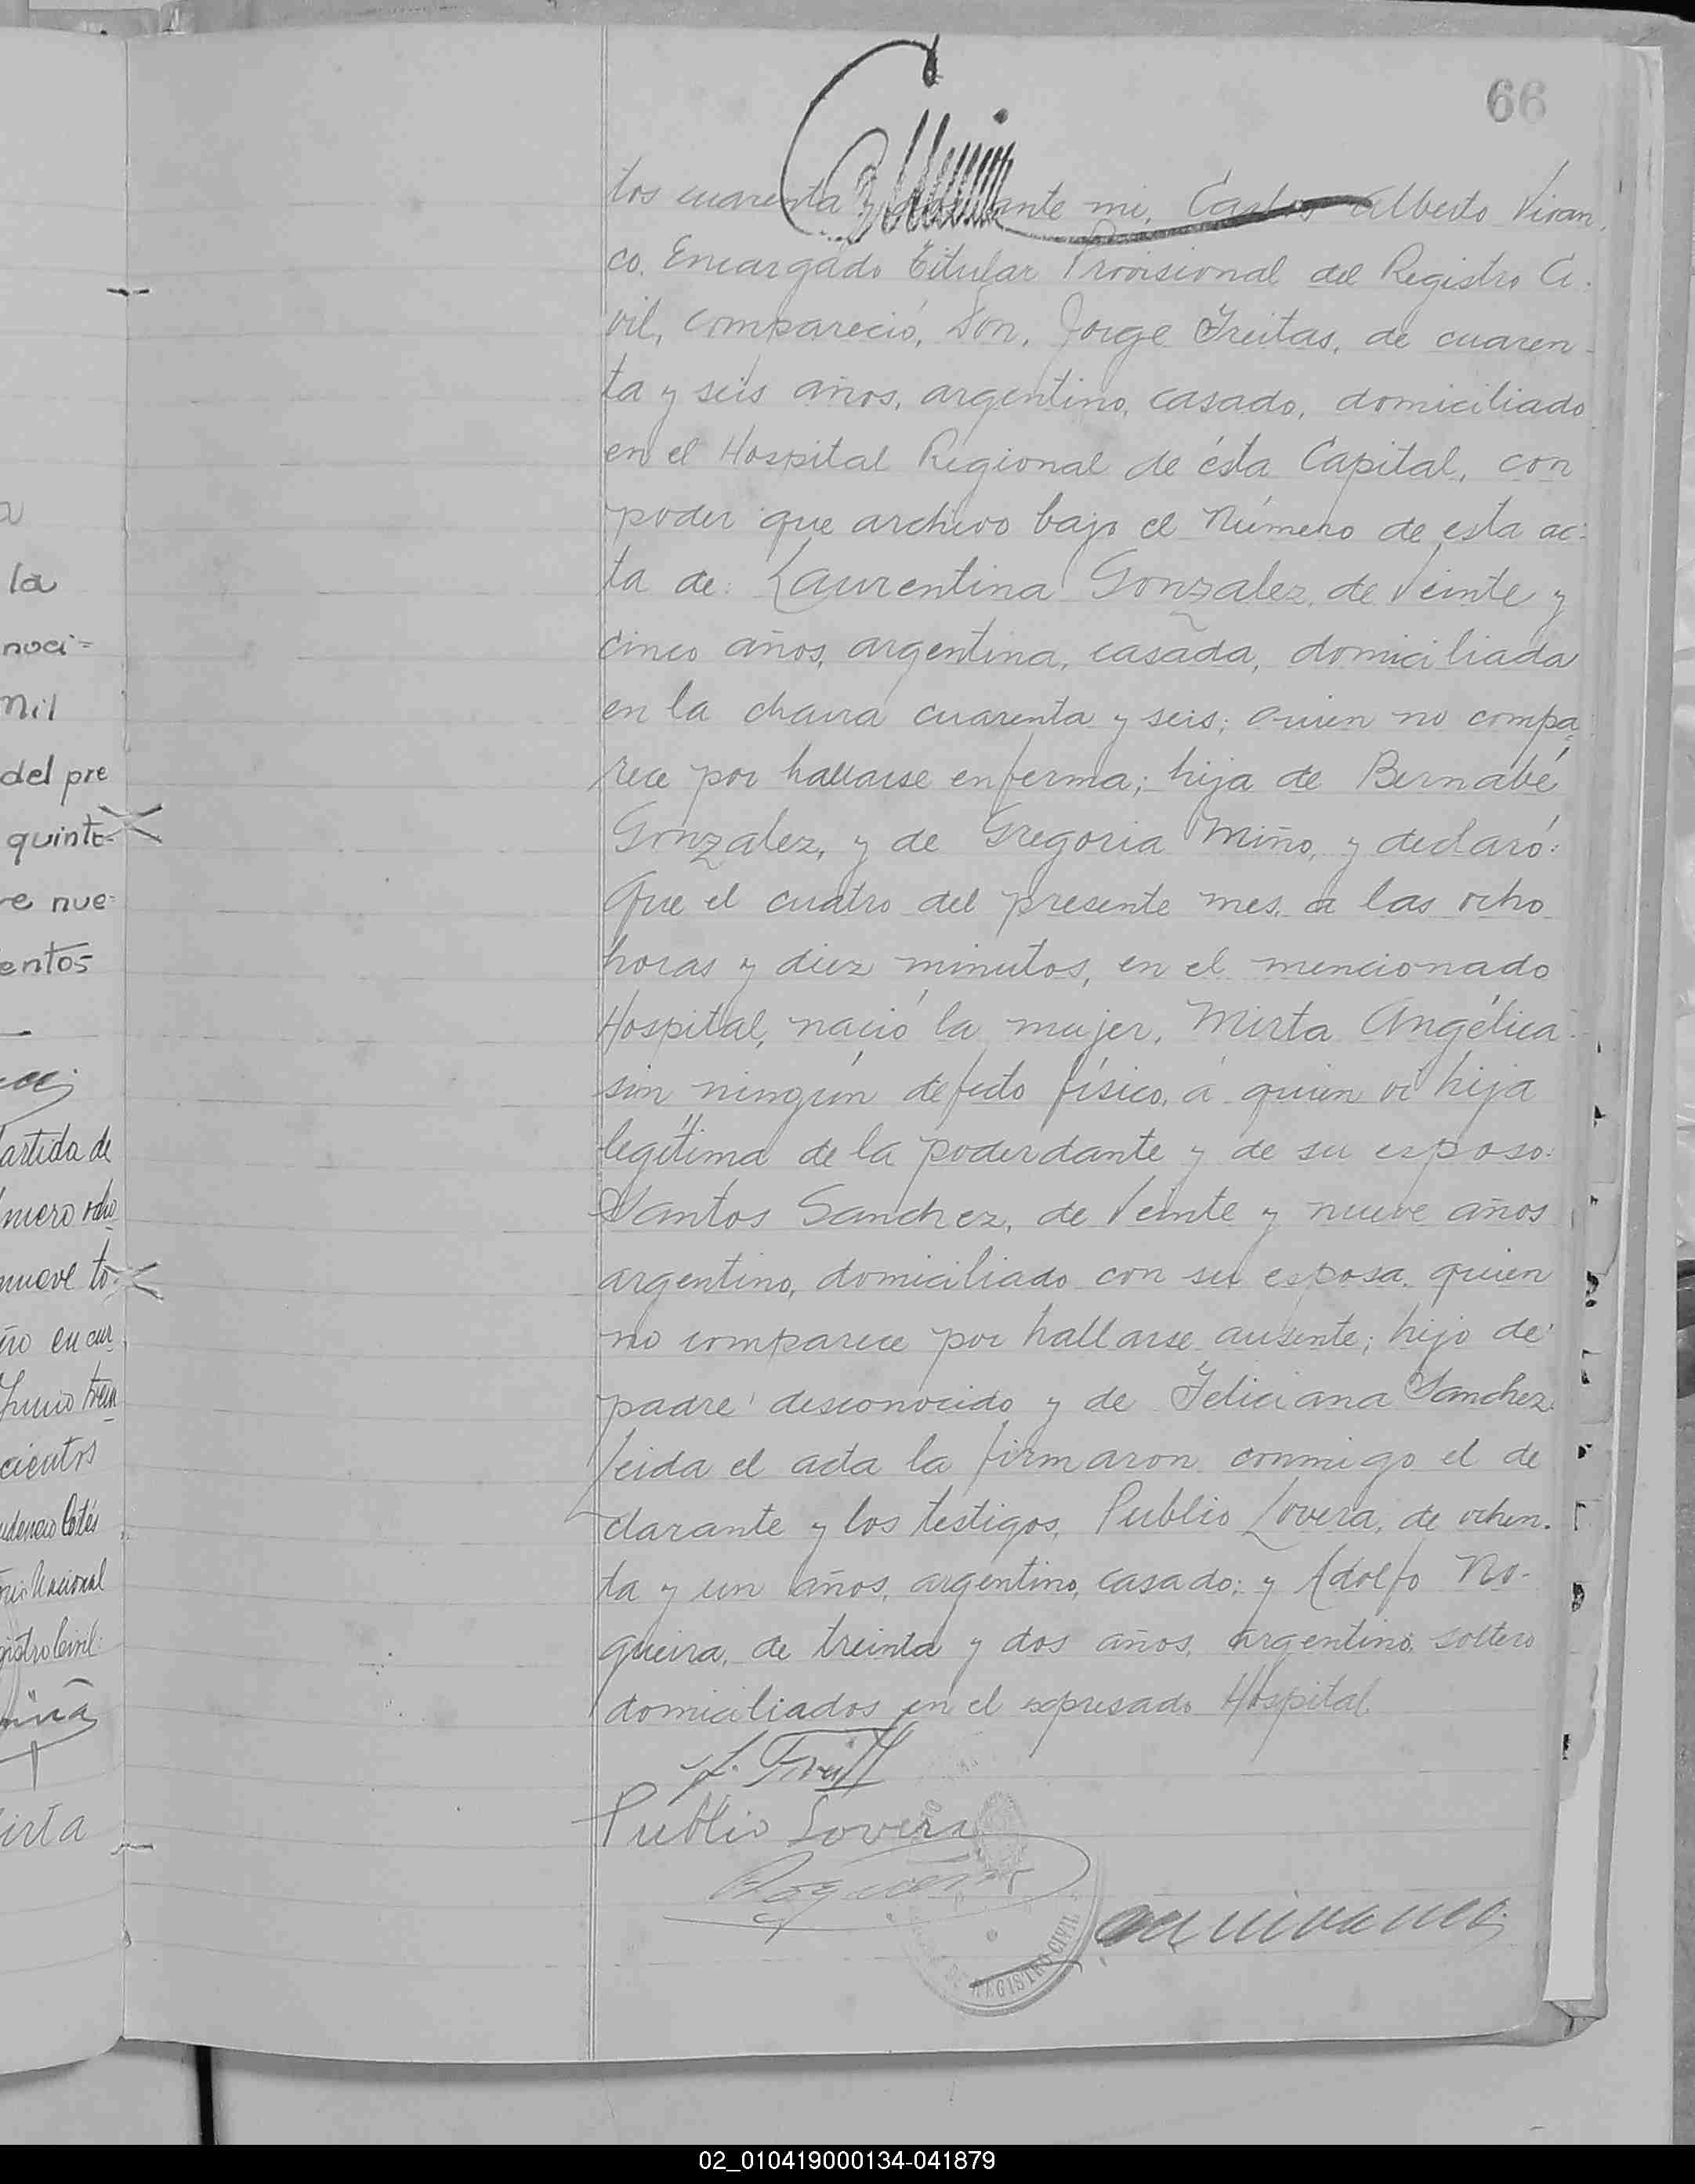 66
tos cuarenta y ante mi, Carlos Alberto Vivan
co. Encargado Titular Provisional del Registro Ci
vil, compareció, Don, Jorge Freitas, de cuaren-
ta y seis años, argentino, casado, domiciliado
en el Hospital Regional de ésta Capital, con
poder que archivo bajo el Número de esta ac-
ta de: Laurentina Gonzalez, de Veinte y
cinco años, argentina, casada, domiciliada
en la chacra cuarenta y seis; quien no compa
rece por hallarse enferma; hija de Bernabé
Gonzalez, y de Gregoria Miño, y declaró:
Que el cuatro del presente mes, a las ocho
horas y diez minutos, en el mencionado
Hospital, nació la mujer, Mirta Angélica
sin ningún defecto físico, á quien vi hija
legítima de la poderdante y de su esposo:
Santos Sanchez, de Veinte y nueve años
argentino, domiciliado con su esposa, quien
no comparece por hallarse ausente; hijo de
padre desconocido y de Feliciana Sanchez.
Leida el acta la firmaron conmigo el de
clarante y los testigos, Publio Lovera, de ochen-
ta y un años, argentino, casado; y Adolfo No-
gueira, de treinta y dos años, argentino, soltero
domiciliados en el expresado Hospital
Publio Lovera
REGISTRO CIVIL
la
noci=
mil
del pre
quinto-
nue=
entos
artida de
mero ocho
nueve to-
en cur
Junio trein
cientos
Nacional
Civil
irta
02_010419000134-041879